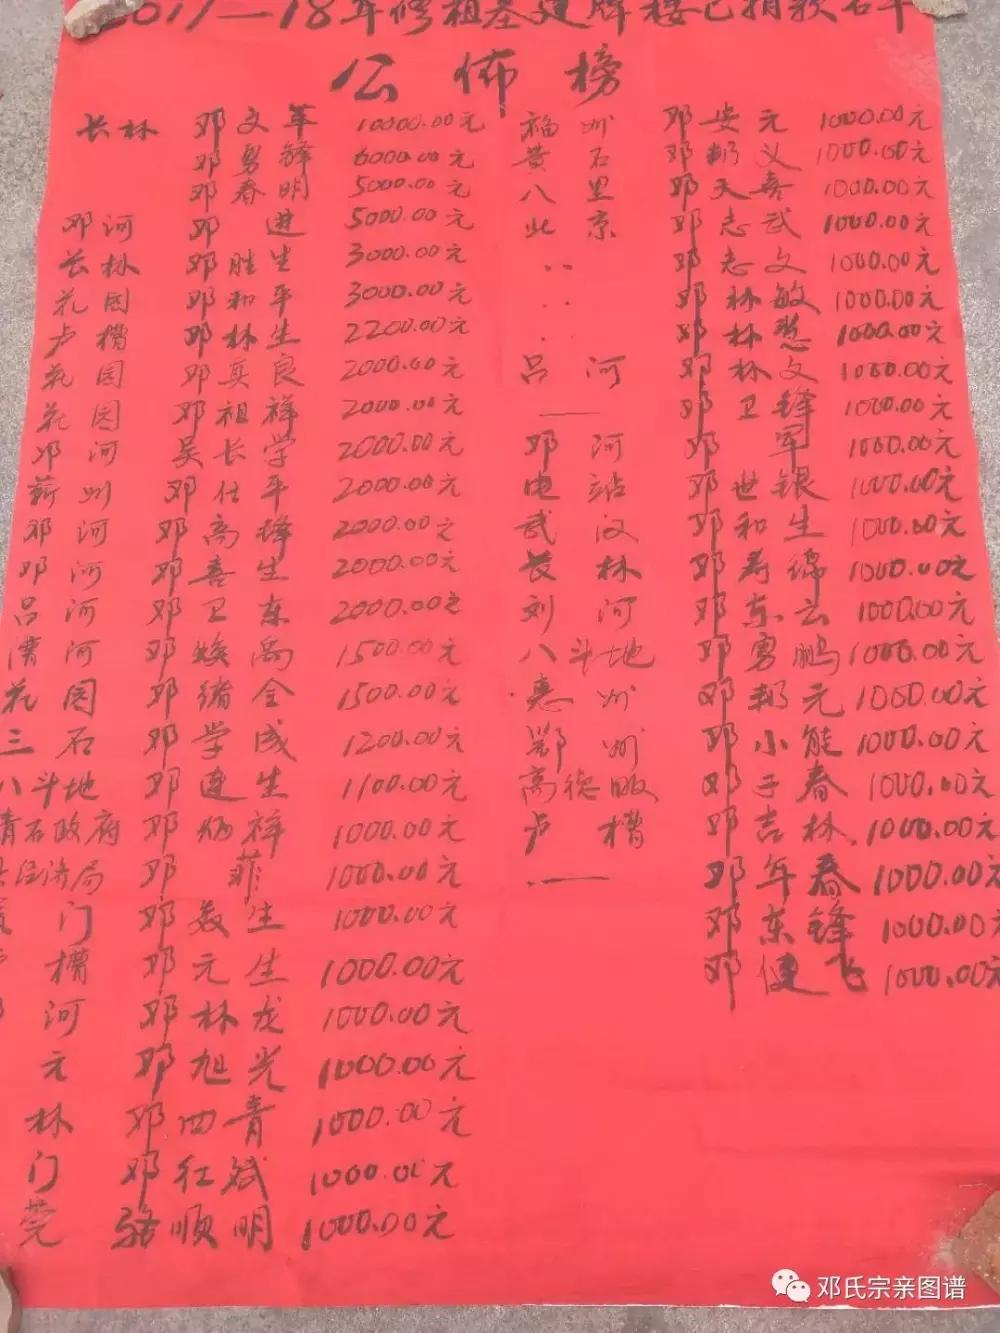 2017—18年修祖墓建牌楼已捐款名单
公佈榜
长林 邓文革 10000.00元
邓勇锋 6000.00元
邓春明 5000.00元
邓河 邓进 5000.00元
长林 邓胜生 3000.00元
花园 邓和平 3000.00元
卢槽 邓林生 2200.00元
花园 邓真良 2000.00元
花园 邓祖祥 2000.00元
邓河 吴长学 2000.00元
蕲州 邓仕平 2000.00元
邓河 邓高锋 2000.00元
邓河 邓喜生 2000.00元
吕河 邓卫东 2000.00元
漕河 邓焕禹 1500.00元
花园 邓绪全 1500.00元
三石 邓学成 1200.00元
八斗地 邓连生 1100.00元
青石政府 邓炳祥 1000.00元
经济局 邓菲 1000.00元
门 邓友生 1000.00元
槽 邓元生 1000.00元
河 邓林龙 1000.00元
元 邓旭光 1000.00元
林 邓四青 1000.00元
门 邓红斌 1000.00元
莞 骆顺明 1000.00元
福州 邓安元 1000.00元
黄石 邓邦义 1000.00元
八里 邓天喜 1000.00元
北京 邓志武 1000.00元
〃 邓志文 1000.00元
〃 邓林敏 1000.00元
〃 邓林慧 1000.00元
吕河 邓林文 1000.00元
—— 邓卫锋 1000.00元
邓河 邓军 1000.00元
电站 邓世银 1000.00元
武汉 邓和生 1000.00元
长林 邓寿锦 1000.00元
刘河 邓东云 1000.00元
八斗地 邓勇鹏 1000.00元
惠州 邓邦元 1000.00元
鄂州 邓小能 1000.00元
高德畈 邓子春 1000.00元
卢槽 邓吉林 1000.00元
—— 邓年春 1000.00元
邓东锋 1000.00元
邓健飞 1000.00元
邓氏宗亲图谱